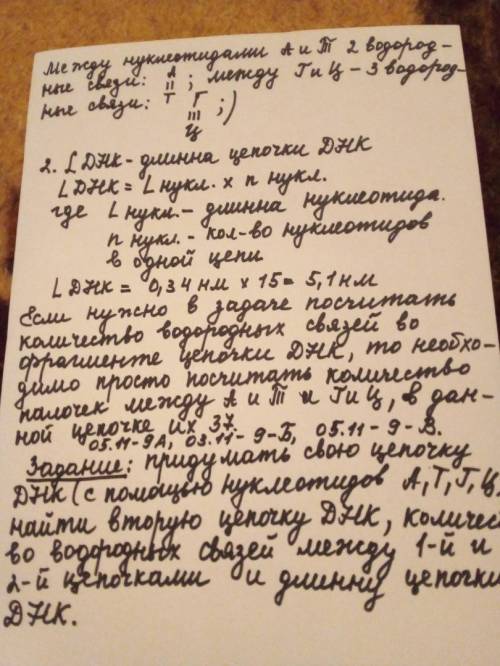 Между нуклеотидами А и Т 2 водород-
ные связи: А
||
Т ; между Г и Ц - 3 водород-
ные связи: Г
|||
Ц ;)
2. L ДНК - длинна цепочки ДНК
L ДНК = L нукл. х n нукл.
где L нукл. - длинна нуклеотида.
n нукл. - кол-во нуклеотидов
в одной цепи
L ДНК = 0,34 нм х 15 = 5,1 нм
Если нужно в задаче посчитать
количество водородных связей во
фрагменте цепочки ДНК, то необхо-
димо просто посчитать количество
палочек между А и Т и Г и Ц, в дан-
ной цепочке их 37.
05.11-9А, 03.11-9-Б, 05.11-9-В.
Задание: придумать свою цепочку
ДНК (с помощью нуклеотидов А, Т, Г, Ц,
найти вторую цепочку ДНК, количес
во водородных связей между 1-й и
2-й цепочками и длинну цепочки
ДНК.